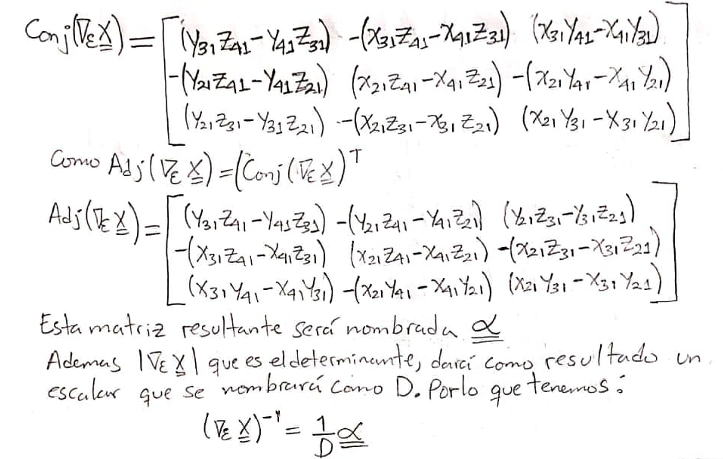 Conj(∇ε X) = [(Y31Z41-Y41Z31) -(X31Z41-X41Z31) (X31Y41-X41Y31)
-(Y21Z41-Y41Z21) (X21Z41-X41Z21) -(X21Y41-X41Y21)
(Y21Z31-Y31Z21) -(X21Z31-X31Z21) (X21Y31-X31Y21)]
Como Adj(∇ε X) = (Conj(∇ε X)^T
Adj(∇ε X) = [(Y31Z41-Y41Z31) -(Y21Z41-Y41Z21) (Y21Z31-Y31Z21)
-(X31Z41-X41Z31) (X21Z41-X41Z21) -(X21Z31-X31Z21)
(X31Y41-X41Y31) -(X21Y41-X41Y21) (X21Y31-X31Y21)]
Esta matriz resultante será nombrada α
Ademas |∇ε X| que es el determinante, dará como resultado un
escalar que se nombrará como D. Por lo que tenemos:
(∇ε X)^-1 = 1/D α